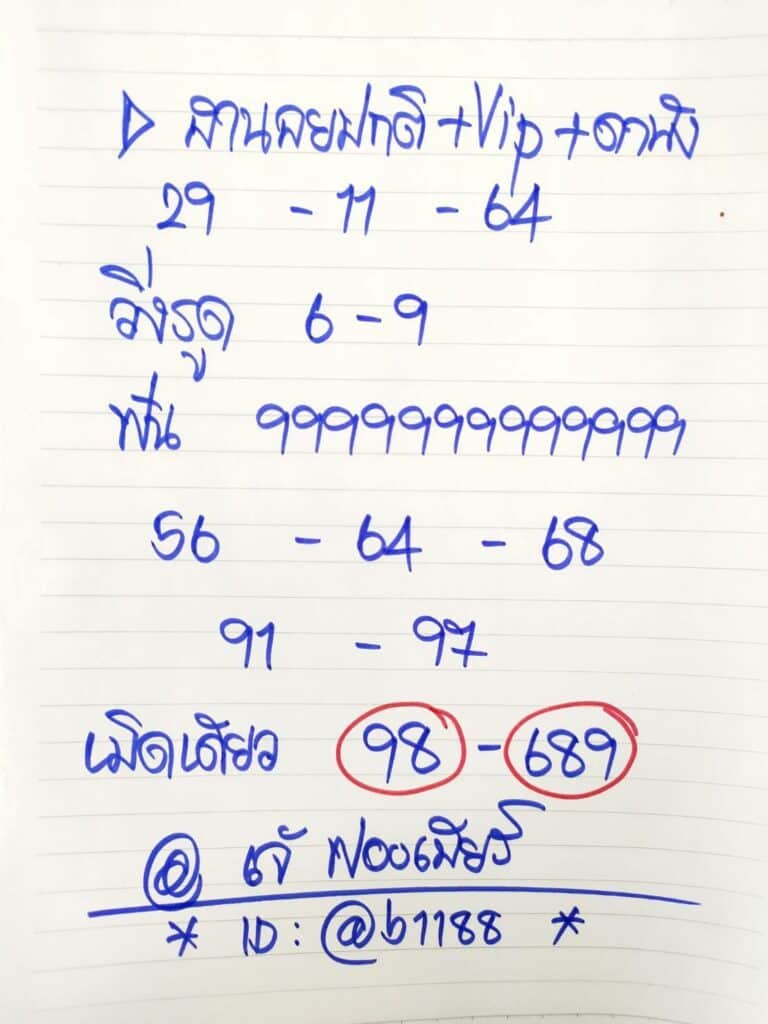 ▷ ฮานอยปกติ+Vip+ดานัง
29 - 11 - 64
วิ่งรูด 6 - 9
ฟัน 9999999999999
56 - 64 - 68
91 - 97
เม็ดเดียว 98 - 689
@ เจ๊ ฟองเบียร์
* ID : @b1188 *